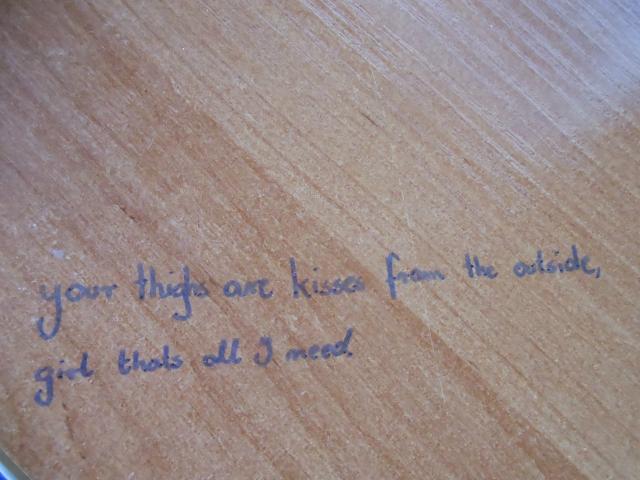 your thighs are kisses from the outside,
girl thats all I need.